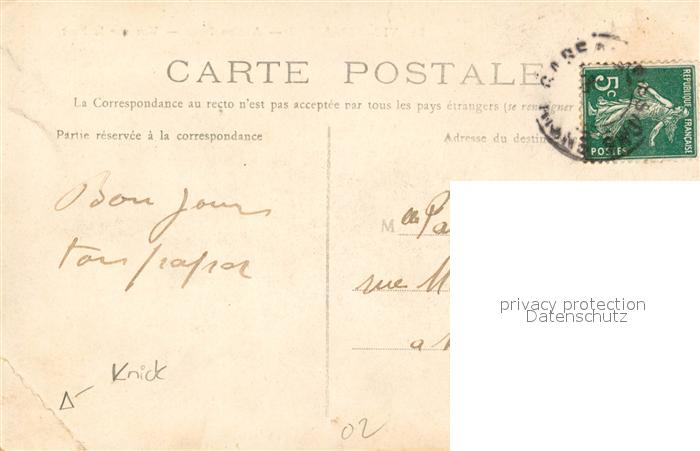 CARTE POSTALE
La Correspondance au recto n'est pas acceptée par tous les pays étrangers (se renseigner
Partie réservée à la correspondance
Adresse du destin
5c
POSTES
REPUBLIQUE FRANÇAISE
GARE
Bon jour
ton papa
M lle Pa
rue M
a
privacy protection
Datenschutz
Knick
02